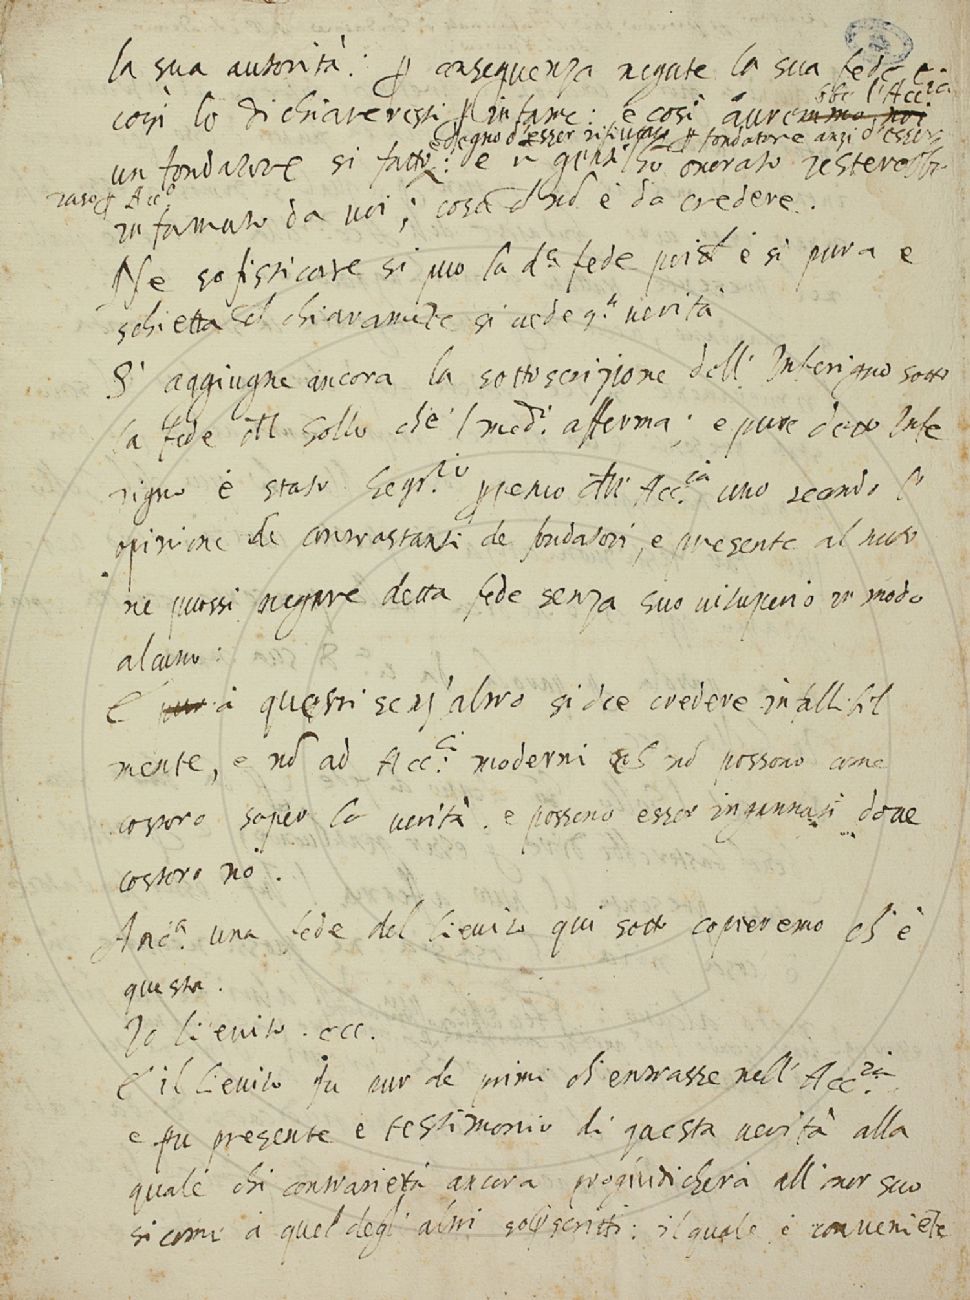 la sua autorità: p conseguenza negate la sua fede e
così lo dichiareressi p infame: e così auremmo noi
sbe l'Acc.ia
e degno d'esser rifiutato p fondatore anzi d'esser
un fondatore si fatto: e honorato resterebbe
raso Acc.
infamato da noi; cosa ch nō è da credere.
Ne sofisticare si puo la d.a fede poich è si pura e
schietta ch chiaramēte si uede q.a uerità
S' aggiugne ancora la sottoscrizione dell' Inferigno sotto
la fede del Sollo che 'l med.o afferma; e pure detto Infe
rigno è stato Segr.rio p.o dell' Acc.ia uno secondo l'
opinione de contrastanti de fondatori, e presente al tutto
ne puossi negare detta fede senza suo uituperio in modo
alcuno:
E pur à questi senz'altro si dee credere infallibil
mente, e nō ad Acc.ci moderni ch nō possono come
costoro saper la uerità. e possono esser ingannati doue
costoro nò.
Anc.a una fede del Lieuito qui sotto copieremo ch è
questa.
Io Lieuito. ecc.
E il Lieuito fu pur de primi ch entrasse nell' Acc.ia
e fu presente e testimonio di questa uerità alla
quale chi contrarietà ancora progiudicherà all'onor suo
si come à quel degli altri soscritti: il quale è conueniēte